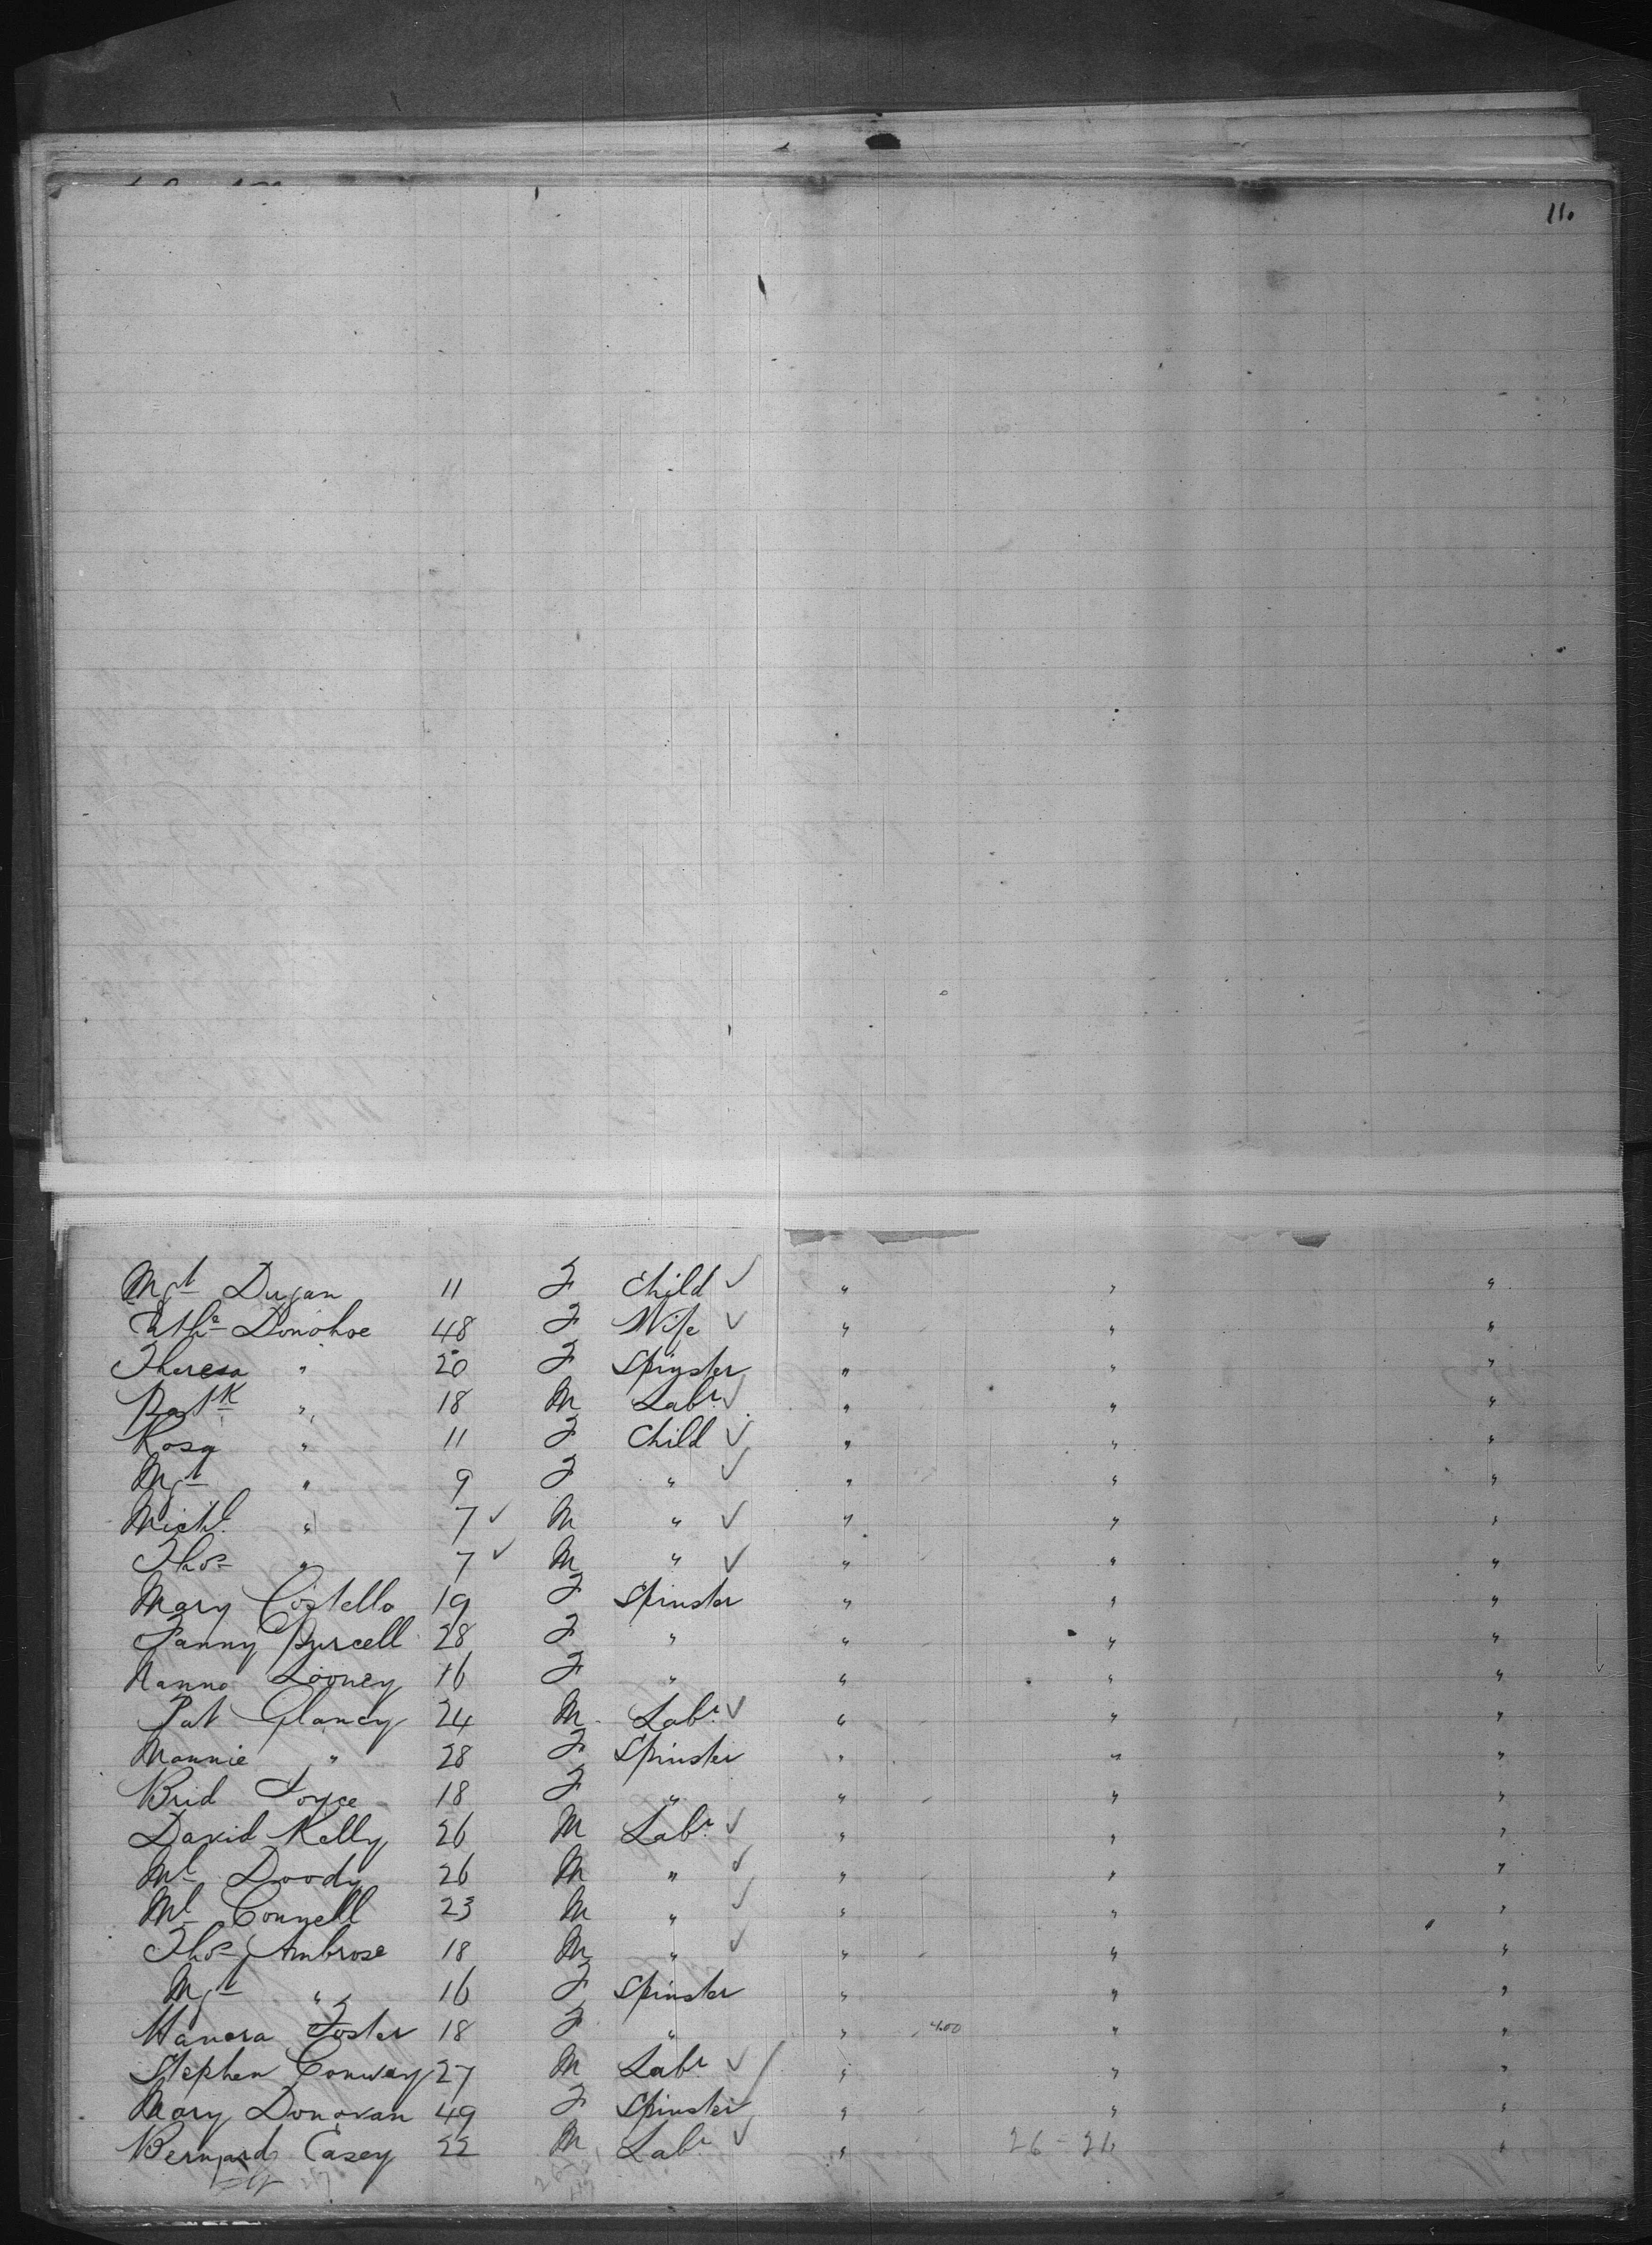 11.
Mgt Dugan 11 F Child ✓ " " "
Cathe Donohoe 48 F Wife ✓ " " "
Theresa " 20 F Spinster " " "
Patk " 18 M Labr ✓ " " "
Rosa " 11 F Child ✓ " " "
Mgt " 9 F " ✓ " " "
Michl. " 7 ✓ M " ✓ " " "
Thos " 7 ✓ M " ✓ " " "
Mary Costello 19 F Spinster " " "
Fanny Purcell 28 F " " " "
Hanna Looney 16 F " " " "
Pat Glancy 24 M Labr ✓ " " "
Mannie " 28 F Spinster " " "
Brid Joyce 18 F " " " "
David Kelly 26 M Labr ✓ " " "
Ml Doody 26 M " ✓ " " "
Ml Connell 23 M " ✓ " " "
Thos Ambrose 18 M " ✓ " " "
Mgt " 16 F Spinster " " "
Hanora Foster 18 F " " 4.00 " "
Stephen Conway 27 M Labr ✓ " " "
Mary Donovan 49 F Spinster " " "
Bernard Casey 22 M Labr ✓ " 26 = 26 "